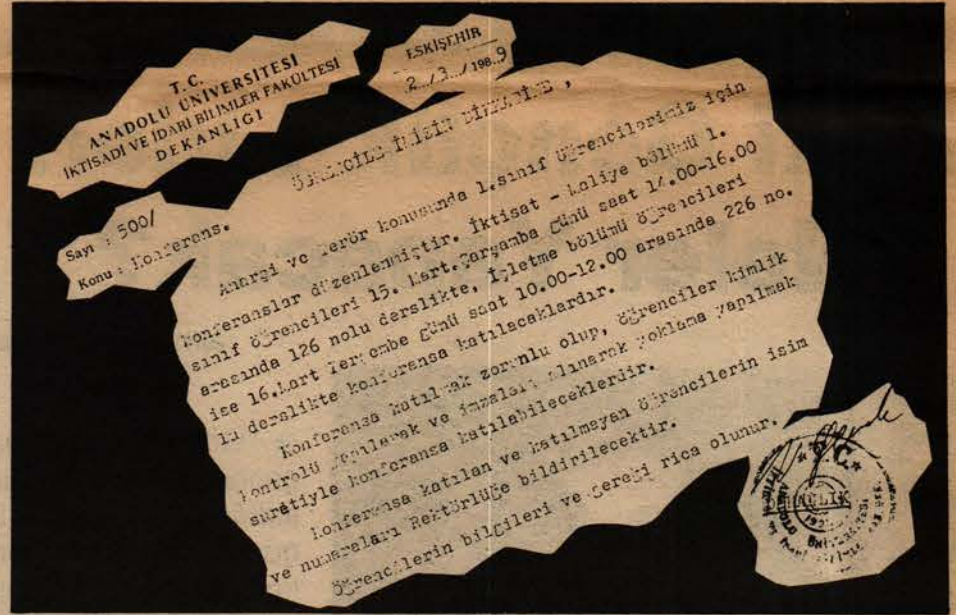 T.C.
ANADOLU ÜNİVERSİTESİ
İKTİSADİ VE İDARİ BİLİMLER FAKÜLTESİ
DEKANLIGI
ESKİŞEHİR
2../3../1989
Sayı : 500/
Konu : Konferans.
ÖĞRENCİLERİMİZİN DİKKATİNE ,
Anarşi ve Terör konusunda 1.sınıf öğrencilerimiz için
konferanslar düzenlenmiştir. İktisat - Maliye bölümü 1.
sınıf öğrencileri 15. Mart.Çarşamba günü saat 14.00-16.00
arasında 126 nolu derslikte, İşletme bölümü öğrencileri
ise 16.Mart Perşembe günü saat 10.00-12.00 arasında 226 no.
lu derslikte konferansa katılacaklardır.
Konferansa katılmak zorunlu olup, öğrenciler kimlik
kontrolü yapılarak ve imzaları alınarak yoklama yapılmak
suretiyle konferansa katılabileceklerdir.
Konferansa katılan ve katılmayan öğrencilerin isim
ve numaraları Rektörlüğe bildirilecektir.
Öğrencilerin bilgileri ve gereği rica olunur.
T.C.